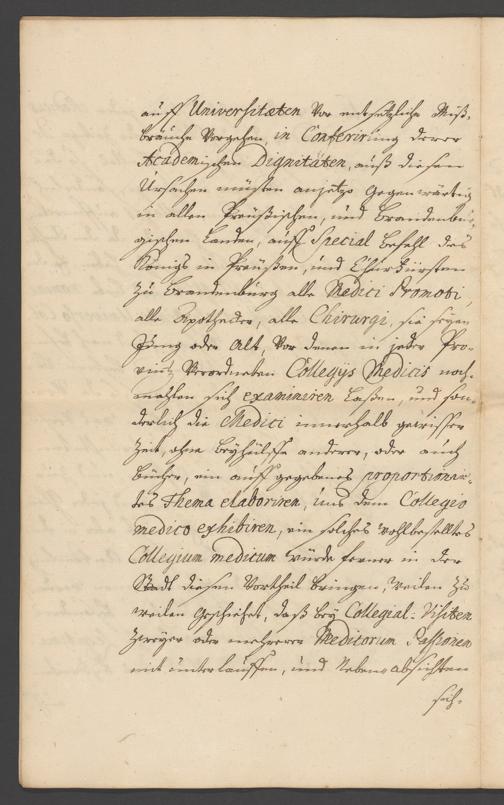 auff Universitæten vor entsetzliche Miß-
bräuche vorgehen in Conferirung derer
Academischen Dignitäten, auß diesen
Ursachen müsten anjetzo gegenwärtig
in allen Preüßischen, und Brandenbur-
gischen Landen, auff Special Befehl des
Königs in Preüßen, und Churfürsten
zu Brandenburg alle Medici Promoti,
alle Apothecker, alle Chirurgi, sie seyen
Jung oder Alt, vor denen in jeder Pro-
vintz verordneten Collegijs Medicis noch-
mahlen sich examiniren laßen, und son-
derlich die Medici innerhalb gewisser
Zeit, ohne beyhülffe anderer, oder auch
bücher, ein auffgegebenes proportionir-
tes Thema elaboriren, und dem Collegio
medico exhibiren, ein solches wohlbestelltes
Collegium medicum würde ferner in der
Stadt diesen Vortheil bringen, weilen zu
weilen geschiehet, daß bey Collegial-Visiten
zweyer oder mehrern Medicorum Passionen
mit unterlauffen, und Nebenabsichten
sich-